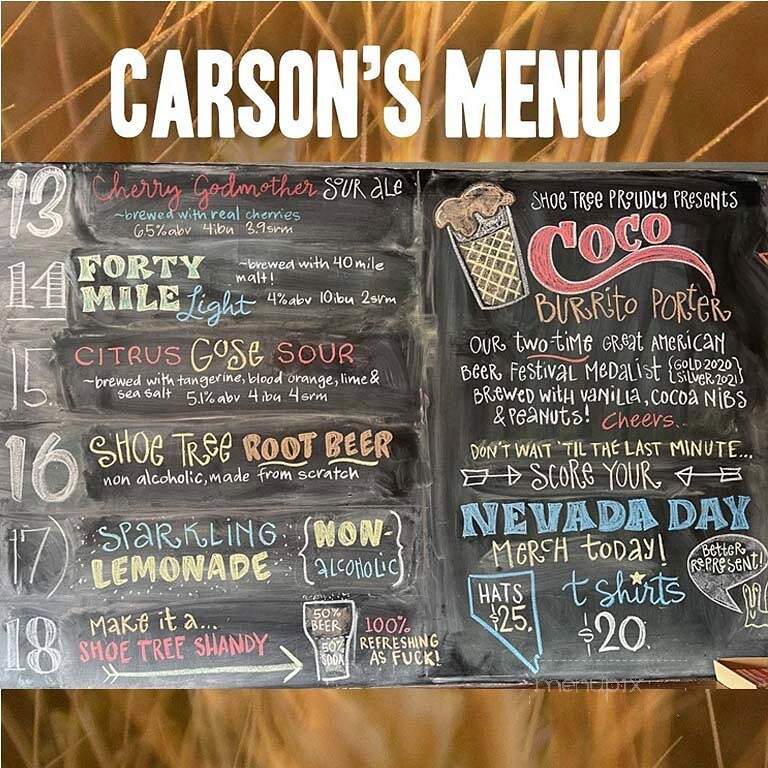 CARSON'S MENU
13 Cherry Godmother SOUR ALE
~brewed with real cherries
6.5%abv 4ibu 3.9srm
14 FORTY MILE Light
~brewed with 40 mile
malt!
4%abv 10ibu 2srm
15. CITRUS GOSE SOUR
~brewed with tangerine, blood orange, lime &
sea salt 5.1%abv 4ibu 4srm
16 SHOE TREE ROOT BEER
non alcoholic, made from scratch
17) SPARKLING
LEMONADE
{NON-
ALCOHOLIC}
18 Make it a...
SHOE TREE SHANDY
50%
BEER
50%
SODA
100%
REFRESHING
AS FUCK!
SHOE TREE PROUDLY PRESENTS
COCO
BURRITO PORTER
OUR two-time GREAT AMERICAN
BEER FESTIVAL MEDALIST {GOLD 2020
SILVER 2021}
BREWED WITH VANILLA, COCOA NIBS
& PEANUTS! Cheers..
DON'T WAIT 'TIL THE LAST MINUTE...
SCORE YOUR
NEVADA DAY
MERCH TODAY!
HATS
$25.
t shirts
$20.
Better
REPRESENT!
menupix